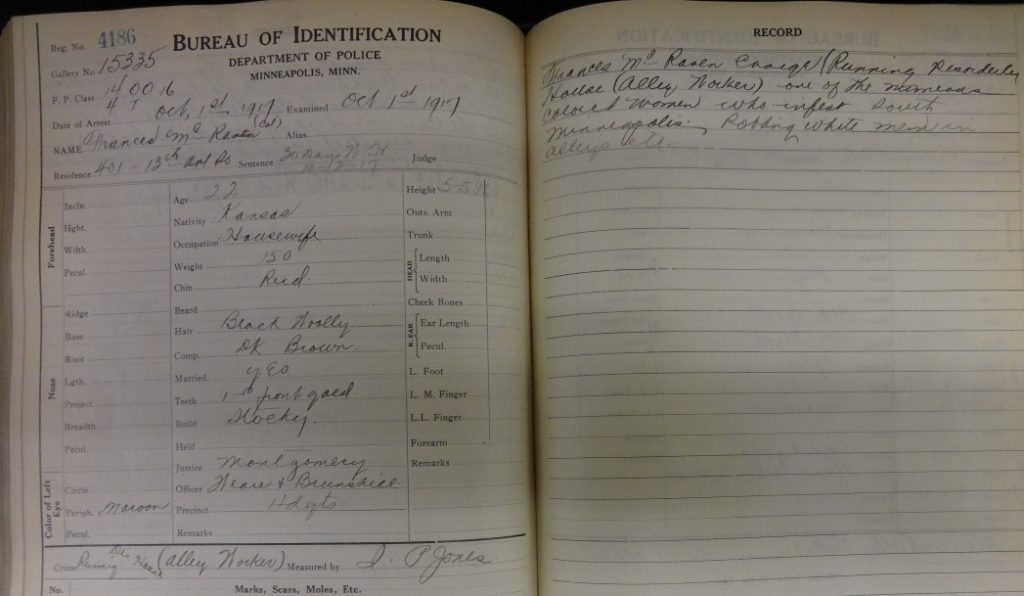 Reg. No. 4186
BUREAU OF IDENTIFICATION
Gallery No 15335
DEPARTMENT OF POLICE
MINNEAPOLIS, MINN.
F. P. Class 14 00 16
4 I
Date of Arrest Oct, 1st 1917 Examined Oct 1st 1917
NAME Frances Mc Raven (Col) Alias
Residence 401 - 13th Ave So Sentence 30 Days Judge
Forehead
Incln.
Hght.
Wdth.
Pecul.
Nose
Ridge
Base
Root
Lgth.
Project
Breadth
Pecul.
Color of Left Eye
Circle
Periph. z Maroon
Pecul.
Age 22
Nativity Kansas
Occupation Housewife
Weight 150
Chin Rcd
Beard
Hair Black Woolly
Comp. DK Brown.
Married yes
Teeth 1 - front gold
Build Stocky.
Held
Justice Montgomery
Officer & Brunskill
Precinct Hdqts
Remarks
Height 5-5
Outs. Arm
Trunk
HEAD
Length
Width
Cheek Bones
R. EAR
Ear Length
Pecul.
L. Foot
L. M. Finger
L.L. Finger
Forearm
Remarks
Crime Running Dis House (Alley Worker) Measured by J. P Jones
No. Marks, Scars, Moles, Etc.
RECORD
Frances Mc Raven (Running Disorderly
House (Alley Worker) one of the numerous
colored women who infest South
Minneapolis. Robbing white men in
alleys etc.